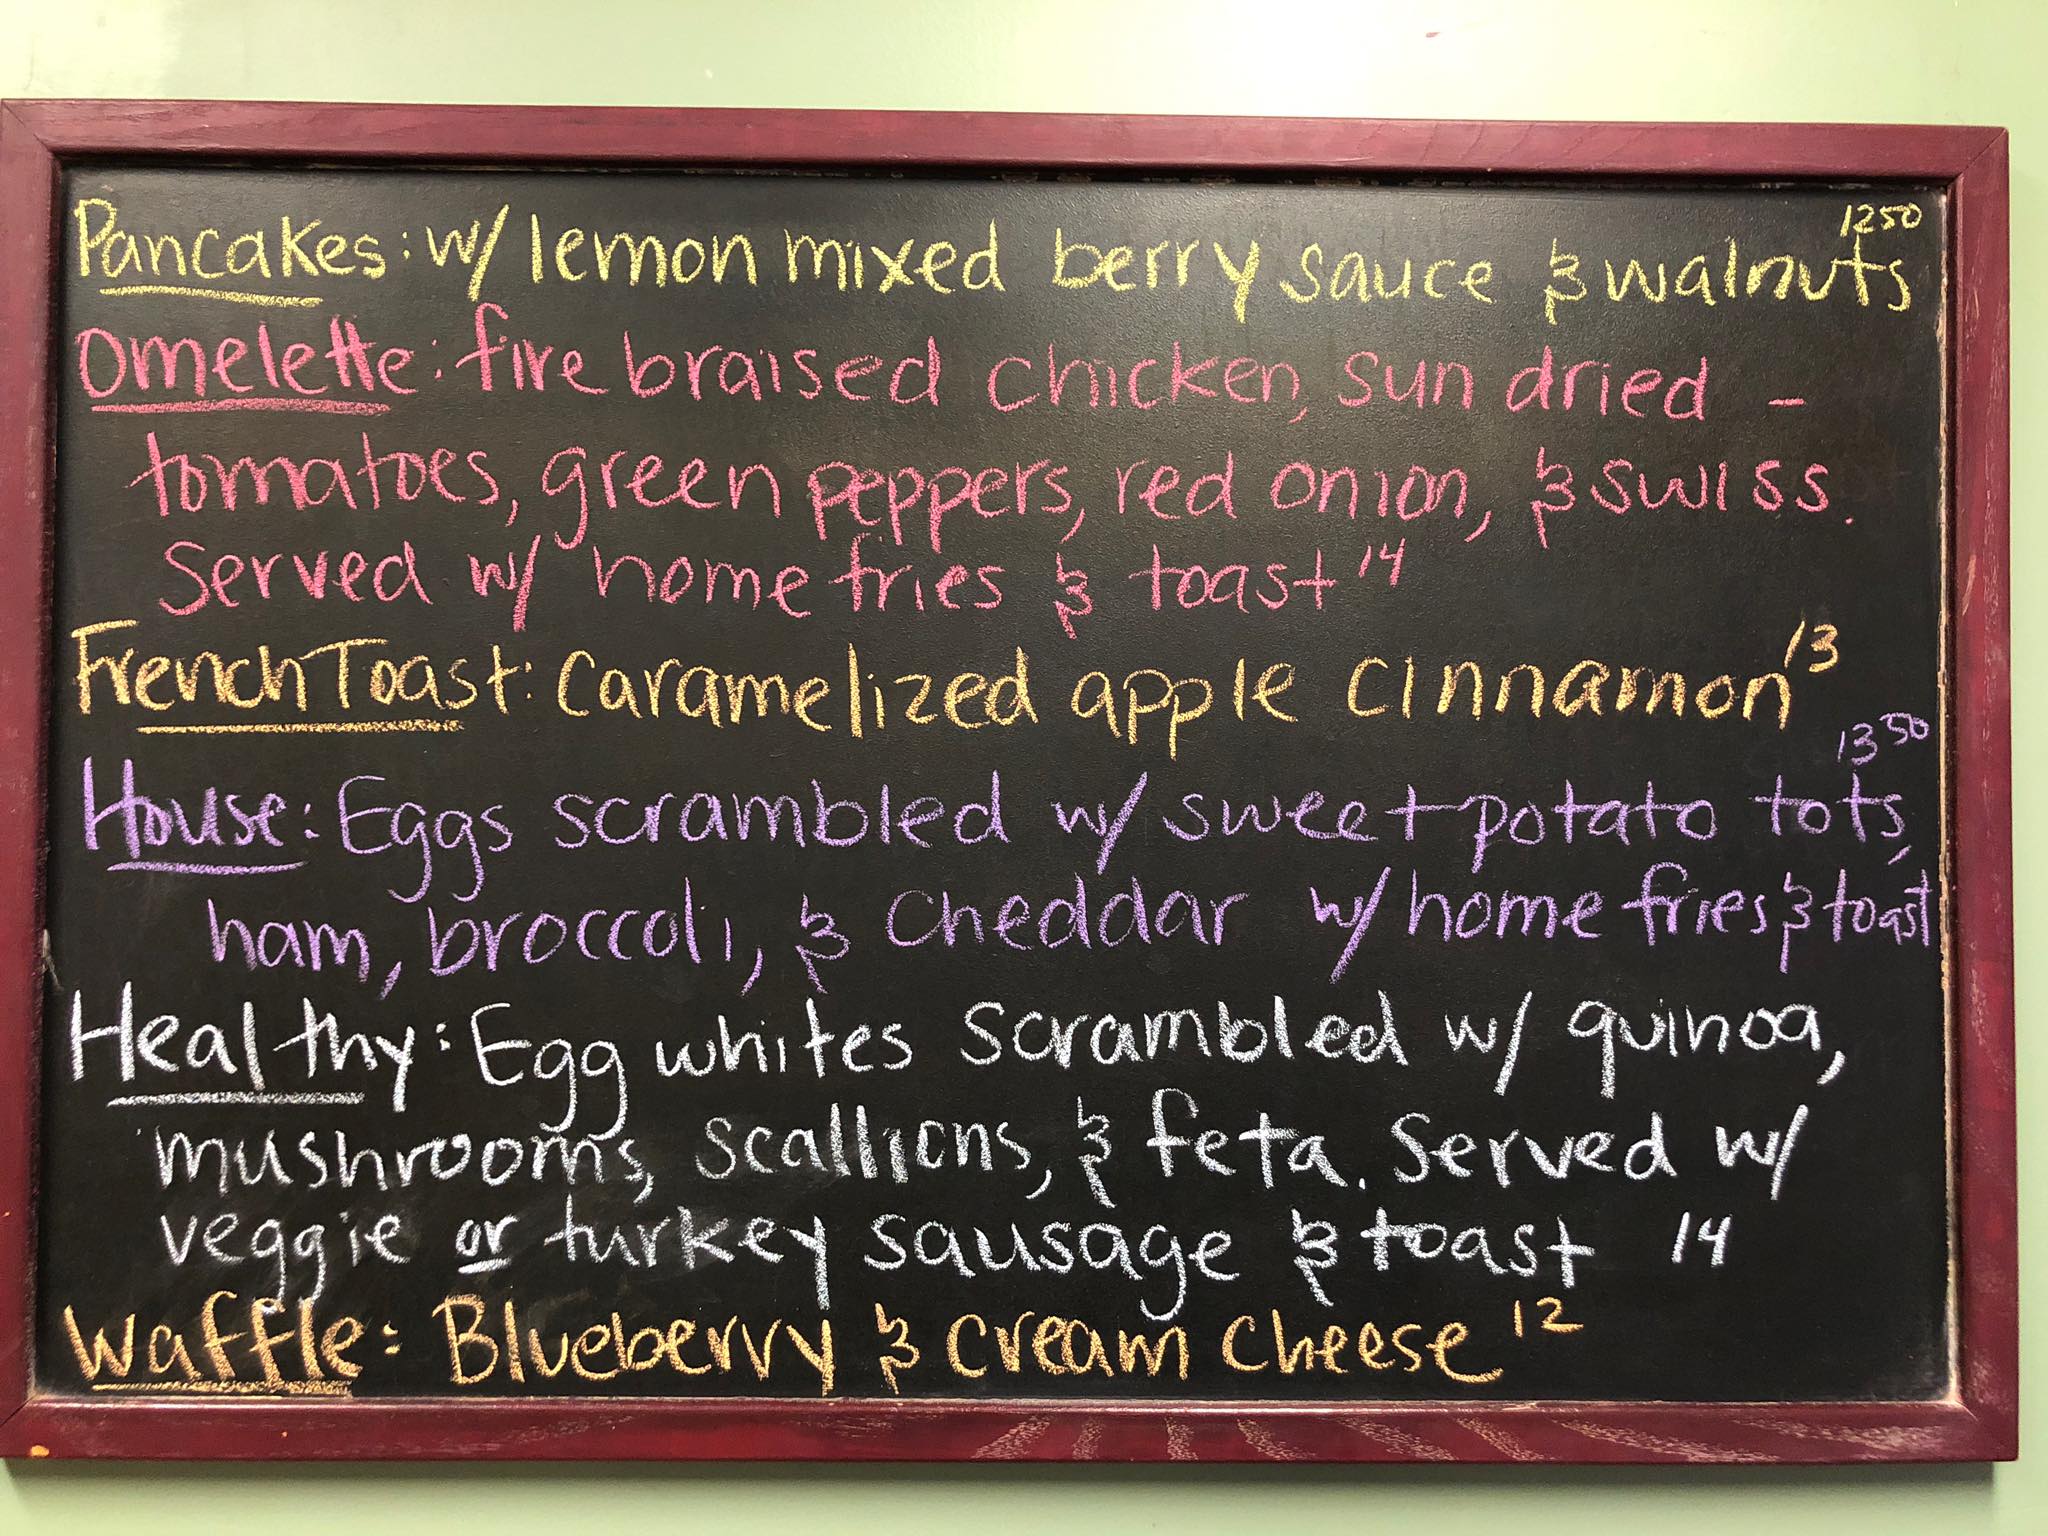 Pancakes: w/ lemon mixed berry sauce & walnuts 1250
Omelette: fire braised chicken, sun dried -
tomatoes, green peppers, red onion, & swiss.
Served w/ home fries & toast 14
French Toast: Caramelized apple cinnamon 13
House: Eggs scrambled w/ sweet potato tots, 1350
ham, broccoli, & cheddar w/ home fries & toast
Healthy: Egg whites scrambled w/ quinoa,
mushrooms, scallions, & feta. Served w/
veggie or turkey sausage & toast 14
Waffle: Blueberry & cream cheese 12